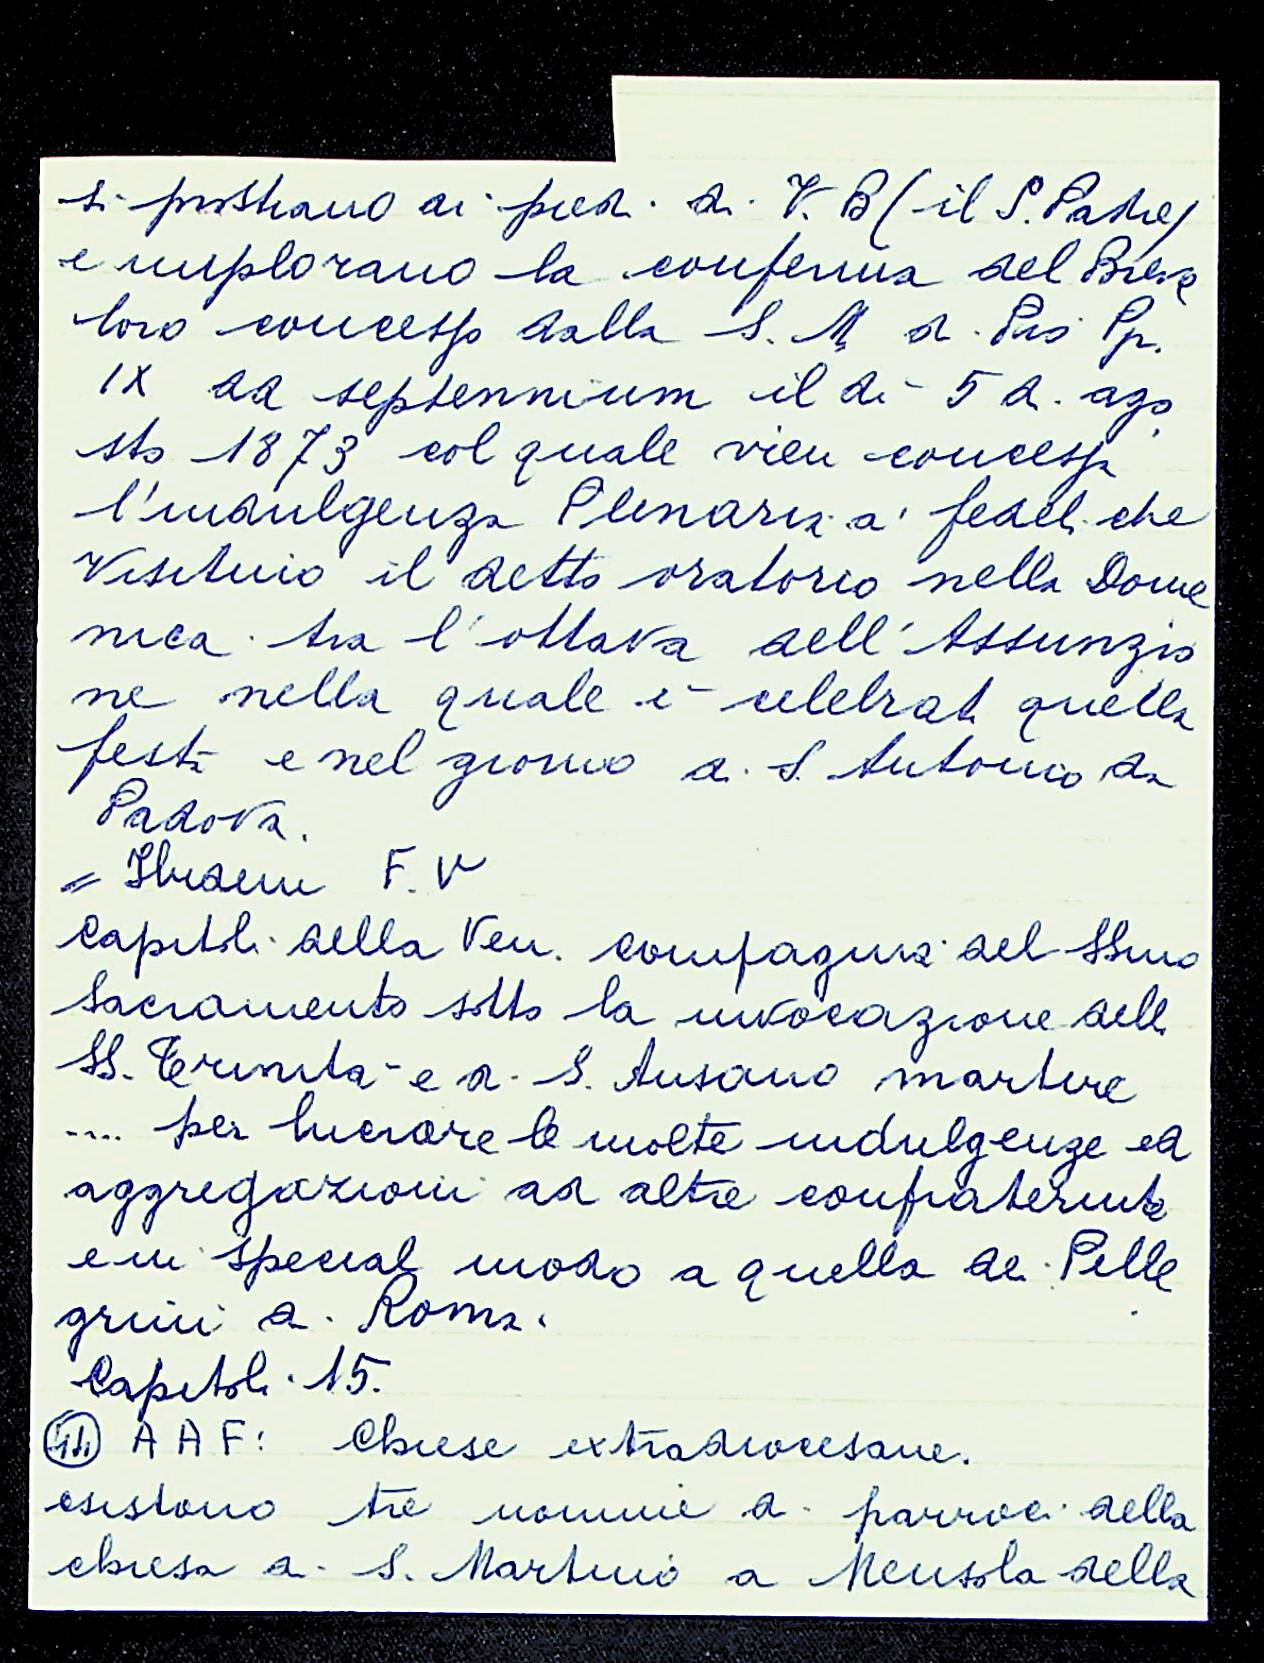 si prostrano ai piedi di V. B (il S. Padre)
e implorano la conferma del Breve
loro concesso dalla S. M di Pio Pp.
IX ad septennium il dì 5 di ago
sto 1873 col quale vien concessa
l'indulgenza Plenaria a' fedeli che
Visitino il detto oratorio nella Dome
nica tra l'ottava dell'Assunzio
ne nella quale è celebrata quella
festa e nel giorno di S. Antonio da
Padova.
= Ibidem F. V
Capitoli della Ven. Compagnia del SSmo
Sacramento sotto la invocazione della
SS. Trinità e di S. Ansano martire
.... per lucrare le molte indulgenze ed
aggregazioni ad altre confraternite
e in special modo a quella dei Pelle
grini di Roma.
Capitoli 15.
A A F: Chiese extradiocesane.
esistono tre nomine di parroci della
chiesa di S. Martino a Mensola della